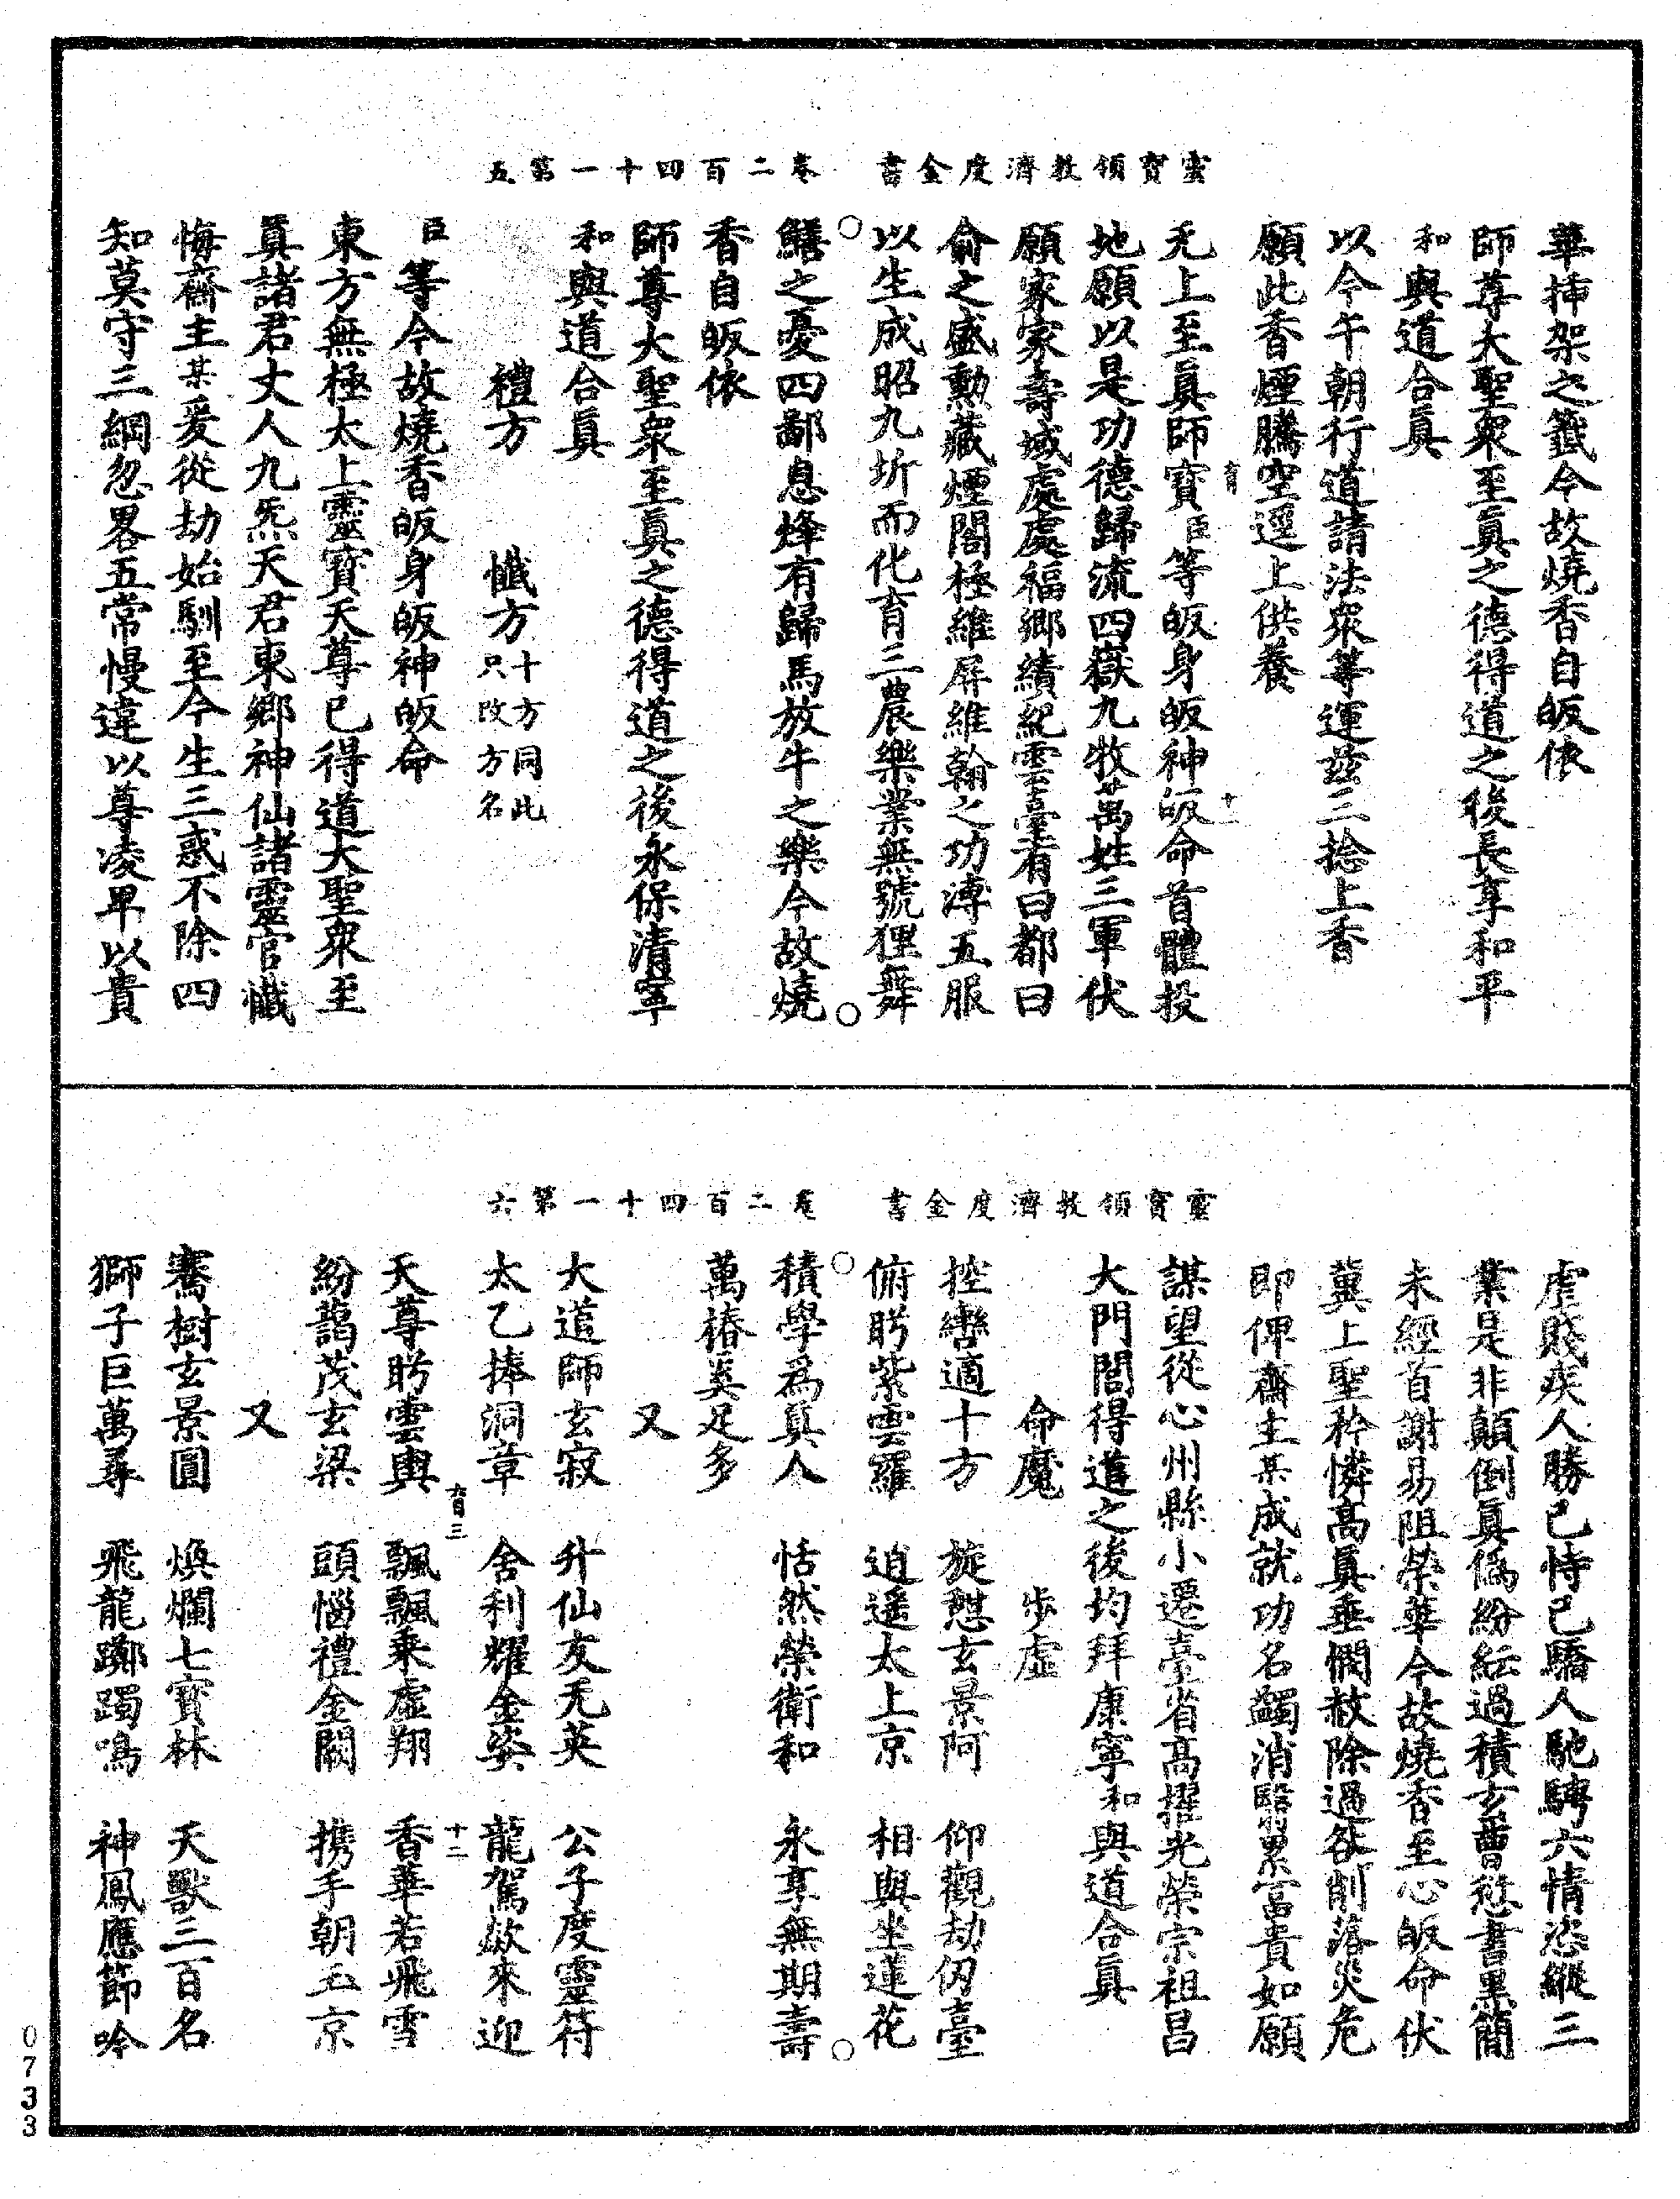 靈寶領教濟度金書　卷二百四十一第五
華揷架之籤今故燒香自皈依
師尊大聖衆至眞之德得道之後長享和平
和與道合眞
以今午朝行道請法衆等運兹三捻上香
願此香煙騰空逕上供養
无上至眞師寶臣等皈身皈神皈命首體投
地願以是功德歸流四嶽九牧萬姓三軍伏
願家家壽域處處福鄉績紀雲臺有曰都曰
俞之盛勳藏煙閣極維屏維翰之功溥五服
以生成昭九圻而化育三農樂業無號狸舞
鱔之憂四鄙息烽有歸馬放牛之樂今故燒
香自皈依
師尊大聖衆至眞之德得道之後永保清寧
和與道合眞
禮方　懺方十方同此只改方名
臣等今故燒香皈身皈神皈命
東方無極太上靈寶天尊已得道大聖衆至
眞諸君丈人九炁天君東鄉神仙諸靈官懺
悔齋主某爰從劫始馴至今生三惑不除四
知莫守三綱忽畧五常慢違以尊凌卑以貴
靈寶領教濟度金書　卷二百四十一第六
虐賤疾人勝己恃己驕人馳騁六情恣縱三
業是非顛倒眞僞紛紜過積玄曹愆書黑簡
未經首謝易阻榮華今故燒香至心皈命伏
冀上聖矜憐高眞垂憫赦除過咎削落災危
即俾齋主某成就功名蠲消翳累富貴如願
謀望從心州縣小遷臺省高擢光榮宗祖昌
大門閭得道之後均拜康寧和與道合眞
命魔　步虛
控轡適十方　旋憩玄景阿　仰觀劫仞臺
俯眄紫雲羅　逍遥太上京　相與坐蓮花
積學爲眞人　恬然榮衛和　永享無期壽
萬椿奚足多
又
大道師玄寂　升仙友无英　公子度靈符
太乙捧洞章　舍利耀金姿　龍駕欻來迎
天尊眄雲輿　飄飄乘虛翔　香華若飛雪
紛藹茂玄梁　頭惱禮金闕　携手朝玉京
又
騫樹玄景圓　煥爛七寶林　天獸三百名
獅子巨萬尋　飛龍躑躅鳴　神鳳應節吟
0733